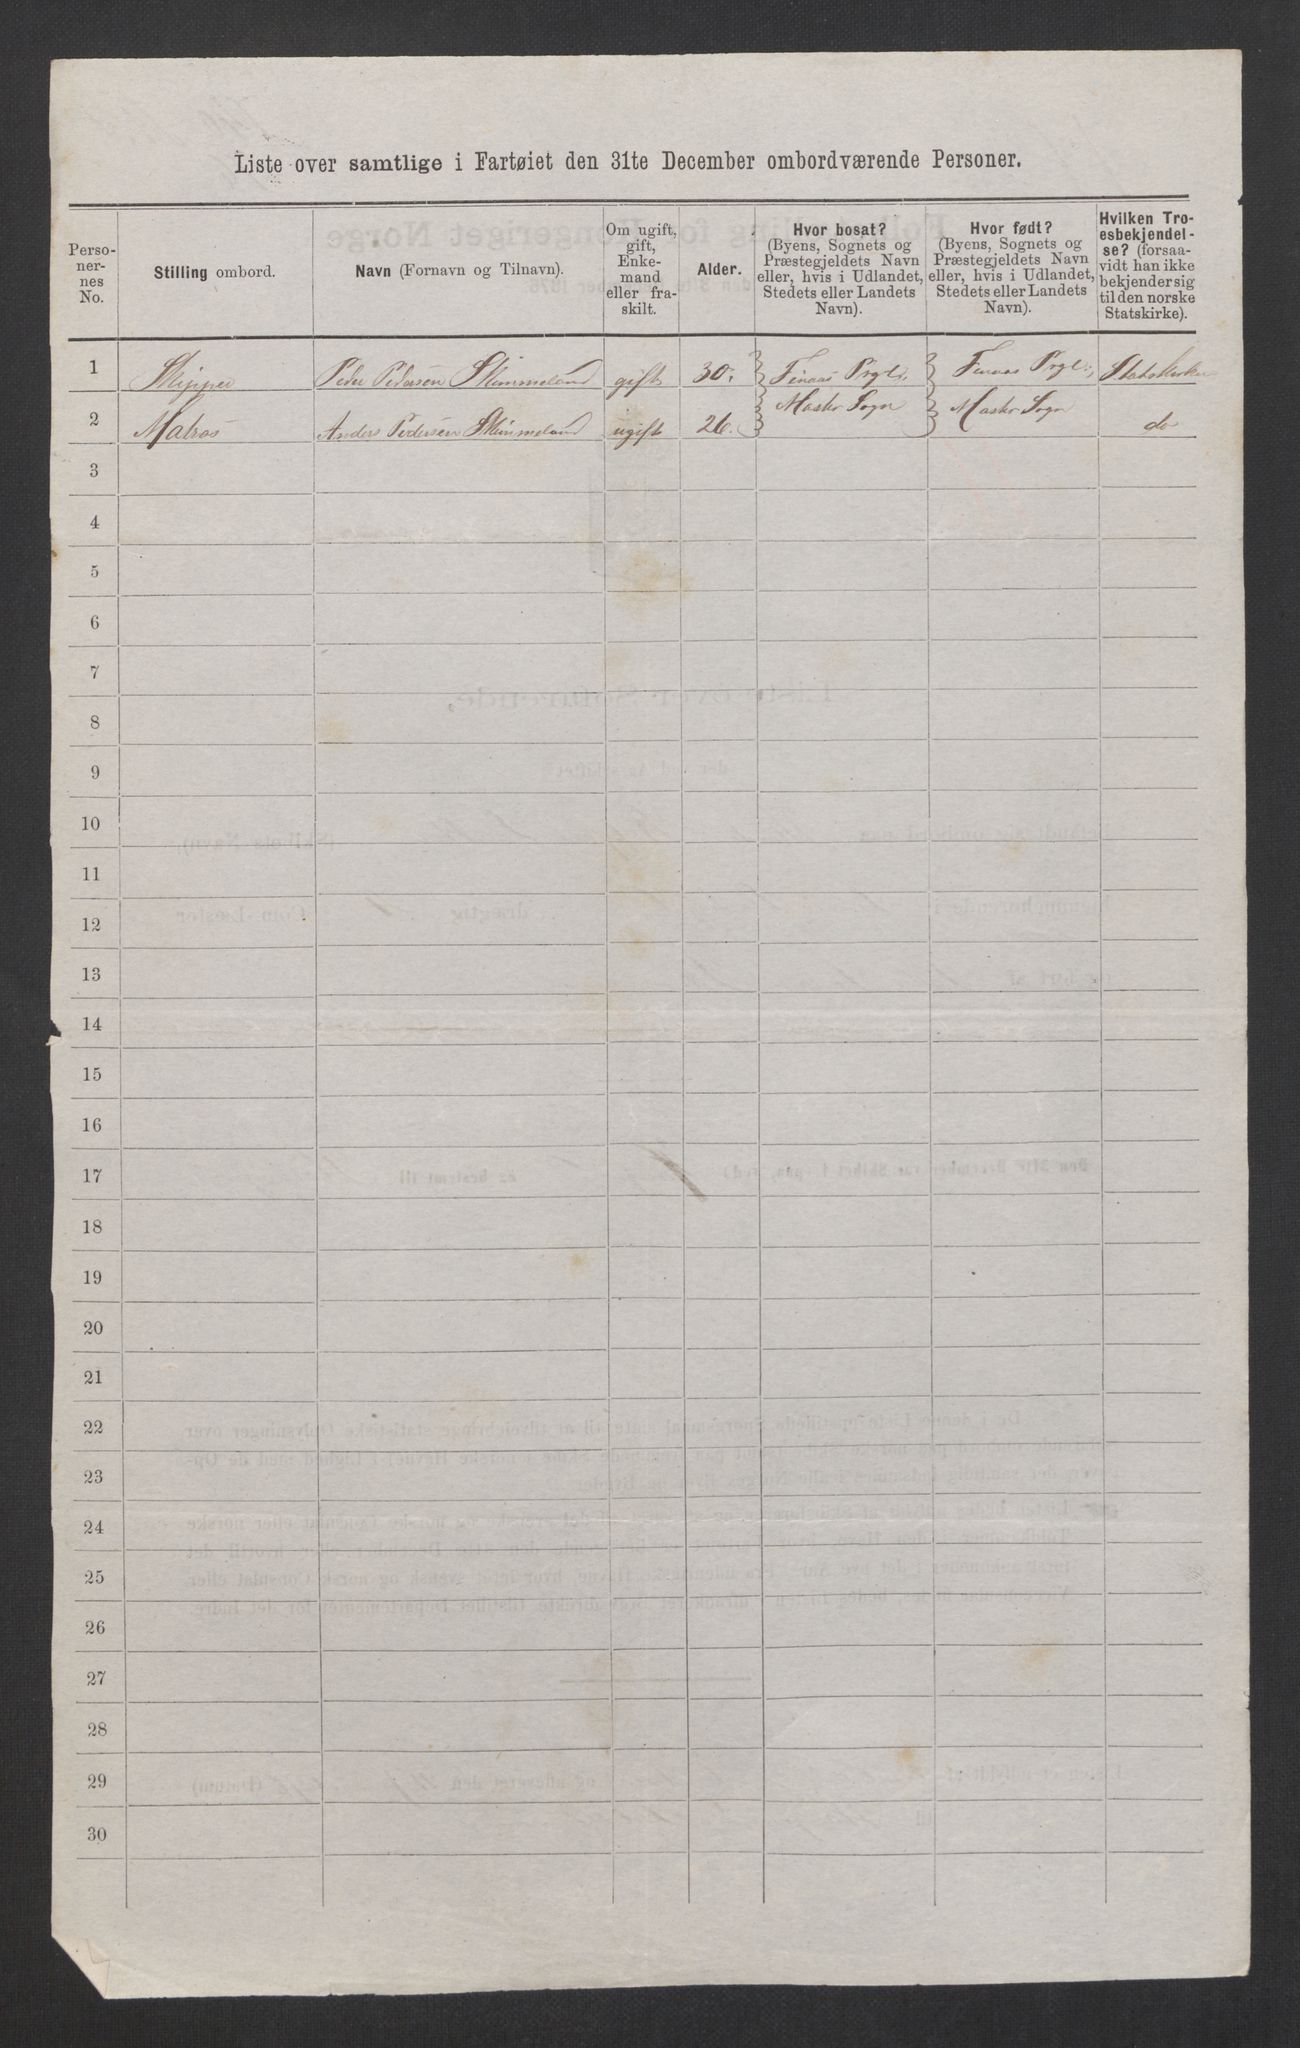 Liste over samtlige i Fartøiet den 31te December ombordværende Personer.
Perso-
ner-
nes
No.
Stilling ombord.
Navn (Fornavn og Tilnavn).
Om ugift,
gift,
Enke-
mand
eller fra-
skilt.
Alder.
Hvor bosat?
(Byens, Sognets og
Præstegjeldets Navn
eller, hvis i Udlandet,
Stedets eller Landets
Navn).
Hvor født?
(Byens, Sognets og
Præstegjeldets Navn
eller, hvis i Udlandet,
Stedets eller Landets
Navn).
Hvilken Tro-
esbekjendel-
se? (forsaa-
vidt han ikke
bekjender sig
til den norske
Statskirke).
1 Skipper Peder Pedersen Skimmeland gift 30. Finaas Prgl. Finaas Prgl. Statskirken
Sogn Sogn
2 Matros Anders Pedersen Skimmeland ugift 26. do
3
4
5
6
7
8
9
10
11
12
13
14
15
16
17
18
19
20
21
22
23
24
25
26
27
28
29
30